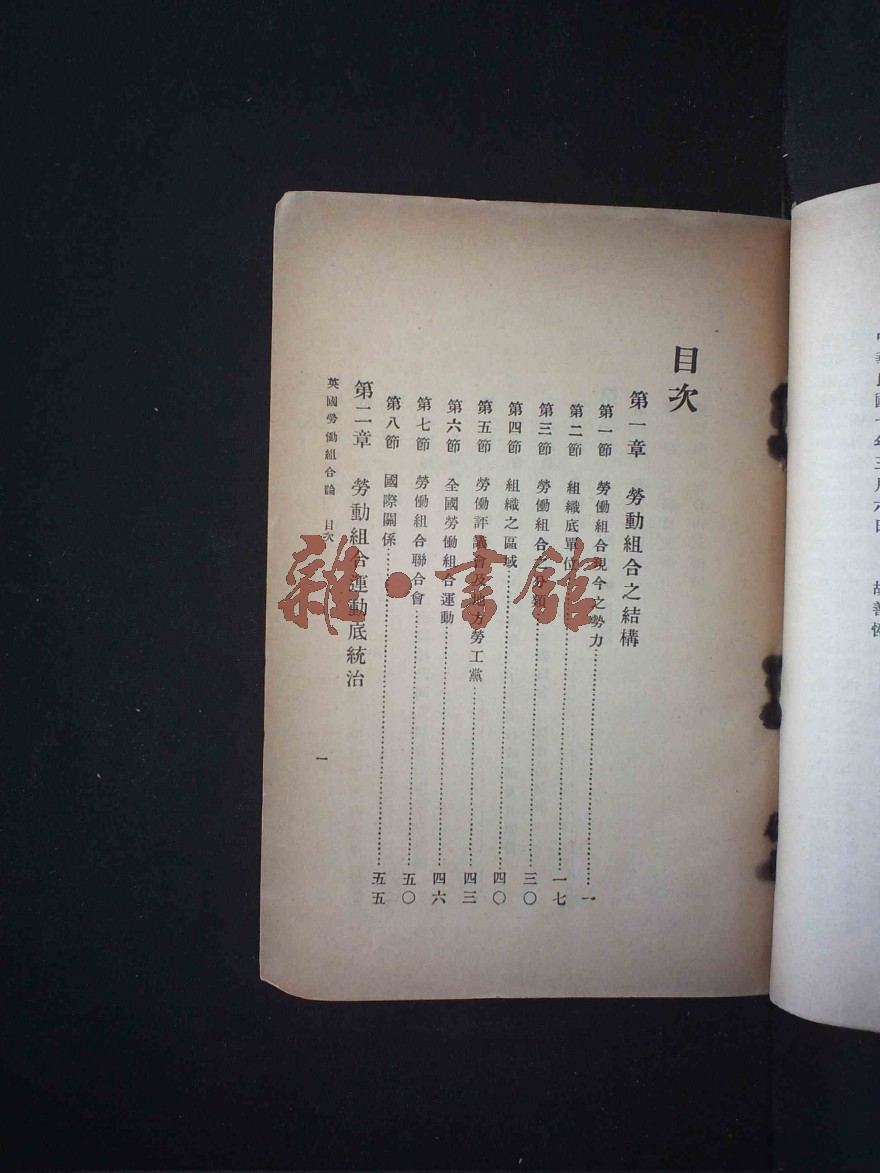 中華民國十年三月六日　胡善恆
目次
第一章　勞動組合之結構
第一節　勞働組合現今之勢力……一
第二節　組織底單位……一七
第三節　勞働組合之分類……三〇
第四節　組織之區域……四〇
第五節　勞働評議會及地方勞工黨……四三
第六節　全國勞働組合運動……四六
第七節　勞働組合聯合會……五〇
第八節　國際關係……五五
第二章　勞動組合運動底統治
英國勞働組合論　目次　一
雜·書館